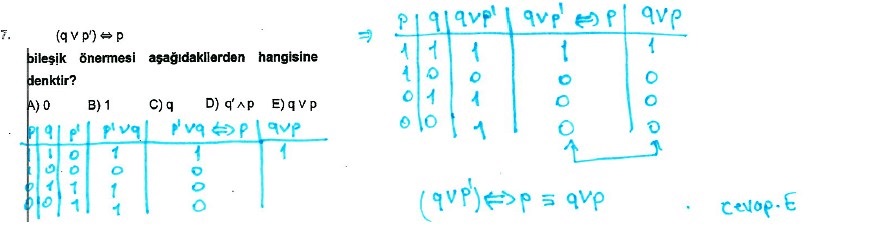 7. (q ∨ p') ⇔ p
bileşik önermesi aşağıdakilerden hangisine
denktir?
A) 0 B) 1 C) q D) q' ∧ p E) q ∨ p
p q p' p'∨q p'∨q ⇔ p q∨p
1 1 0 1 1 1
1 0 0 0 0
0 1 1 1 0
0 0 1 1 0
⇒ p q q∨p' q∨p' ⇔ p q∨p
1 1 1 1 1
1 0 0 0 0
0 1 1 0 0
0 0 1 0 0
(q∨p') ⇔ p ≡ q∨p . cevap. E